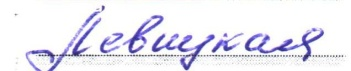 Левицкая